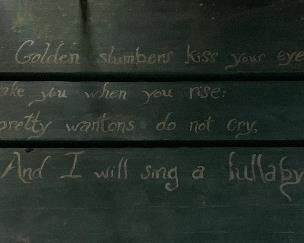 Golden slumbers kiss your eye
ake you when you rise:
pretty wantons do not cry,
And I will sing a lullaby